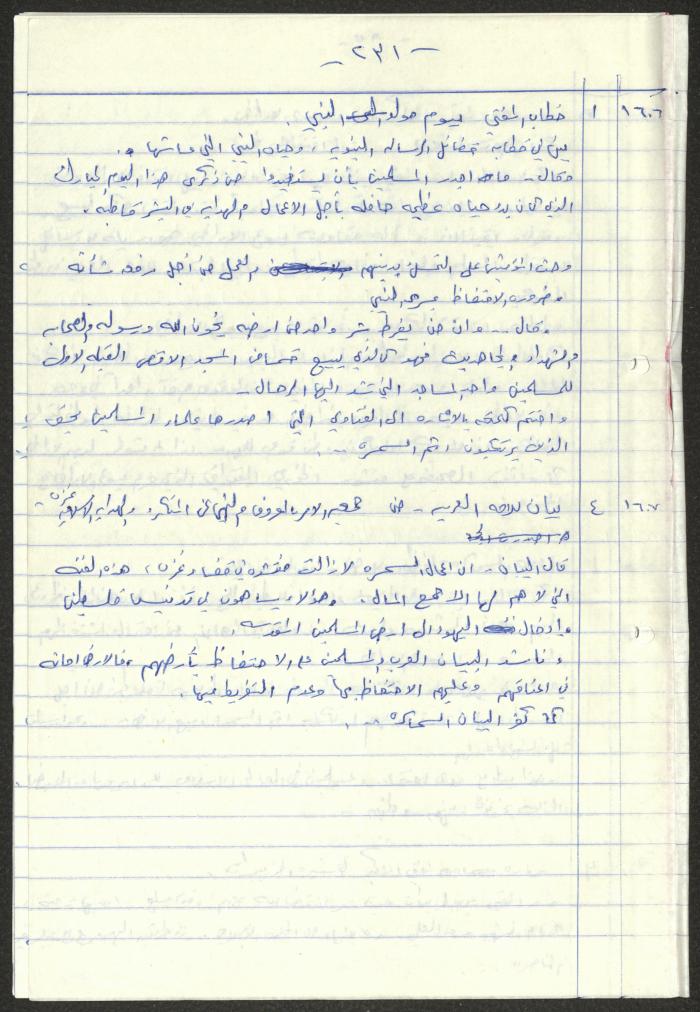 - ٢٣١ -
١٦٠٦ ١ خطاب المفتي بيوم مولد النبي .
بين في خطابه فضائل الرسالة النبوية ، وحياة النبي التي عاشها .
وقال - ما اجدر المسلمين بأن يستفيدوا من ذكرى هذا اليوم المبارك
الذي كان بدء حياة عظيمة حافله بأجل الاعمال والهداية للبشر قاطبة .
وحث المؤمنين على التمسك بدينهم والعمل من أجل رفعة شأنه
وضرورة الاحتفاظ
وقال .. وان من يفرط بشبر واحد من ارضه يخون الله ورسوله والصحابه
والشهداء والمجاهدين فهو كالذي يبيع المسجد الاقصى القبلة الاولى
للمسلمين واحد المساجد التي تشد اليها الرحال -
واختتم كلمته بالاشاره الى الفتاوي التي اصدرها علماء المسلمين بحق
الذين يرتكبون اثم السمسرة ...
١٦٠٧ ٤ بيان للامة العربية - من جمعية الامر بالمعروف والنهي عن المنكر والهداية الاسلامية
قال البيان - ان اعمال السمسره لا زالت منتشرة في قضاء غزة ، هذه الفئة
التي لا هم لها الا جمع المال . وهؤلاء يساهمون في فلسطين
وادخال اليهود الى ارض المسلمين المقدسة .
وناشد البيان العرب والمسلمين على الاحتفاظ بأرضهم ، فالارض امانه
في اعناقهم وعليهم الاحتفاظ بها وعدم التفريط فيها .
كما كفر البيان السماسرة .